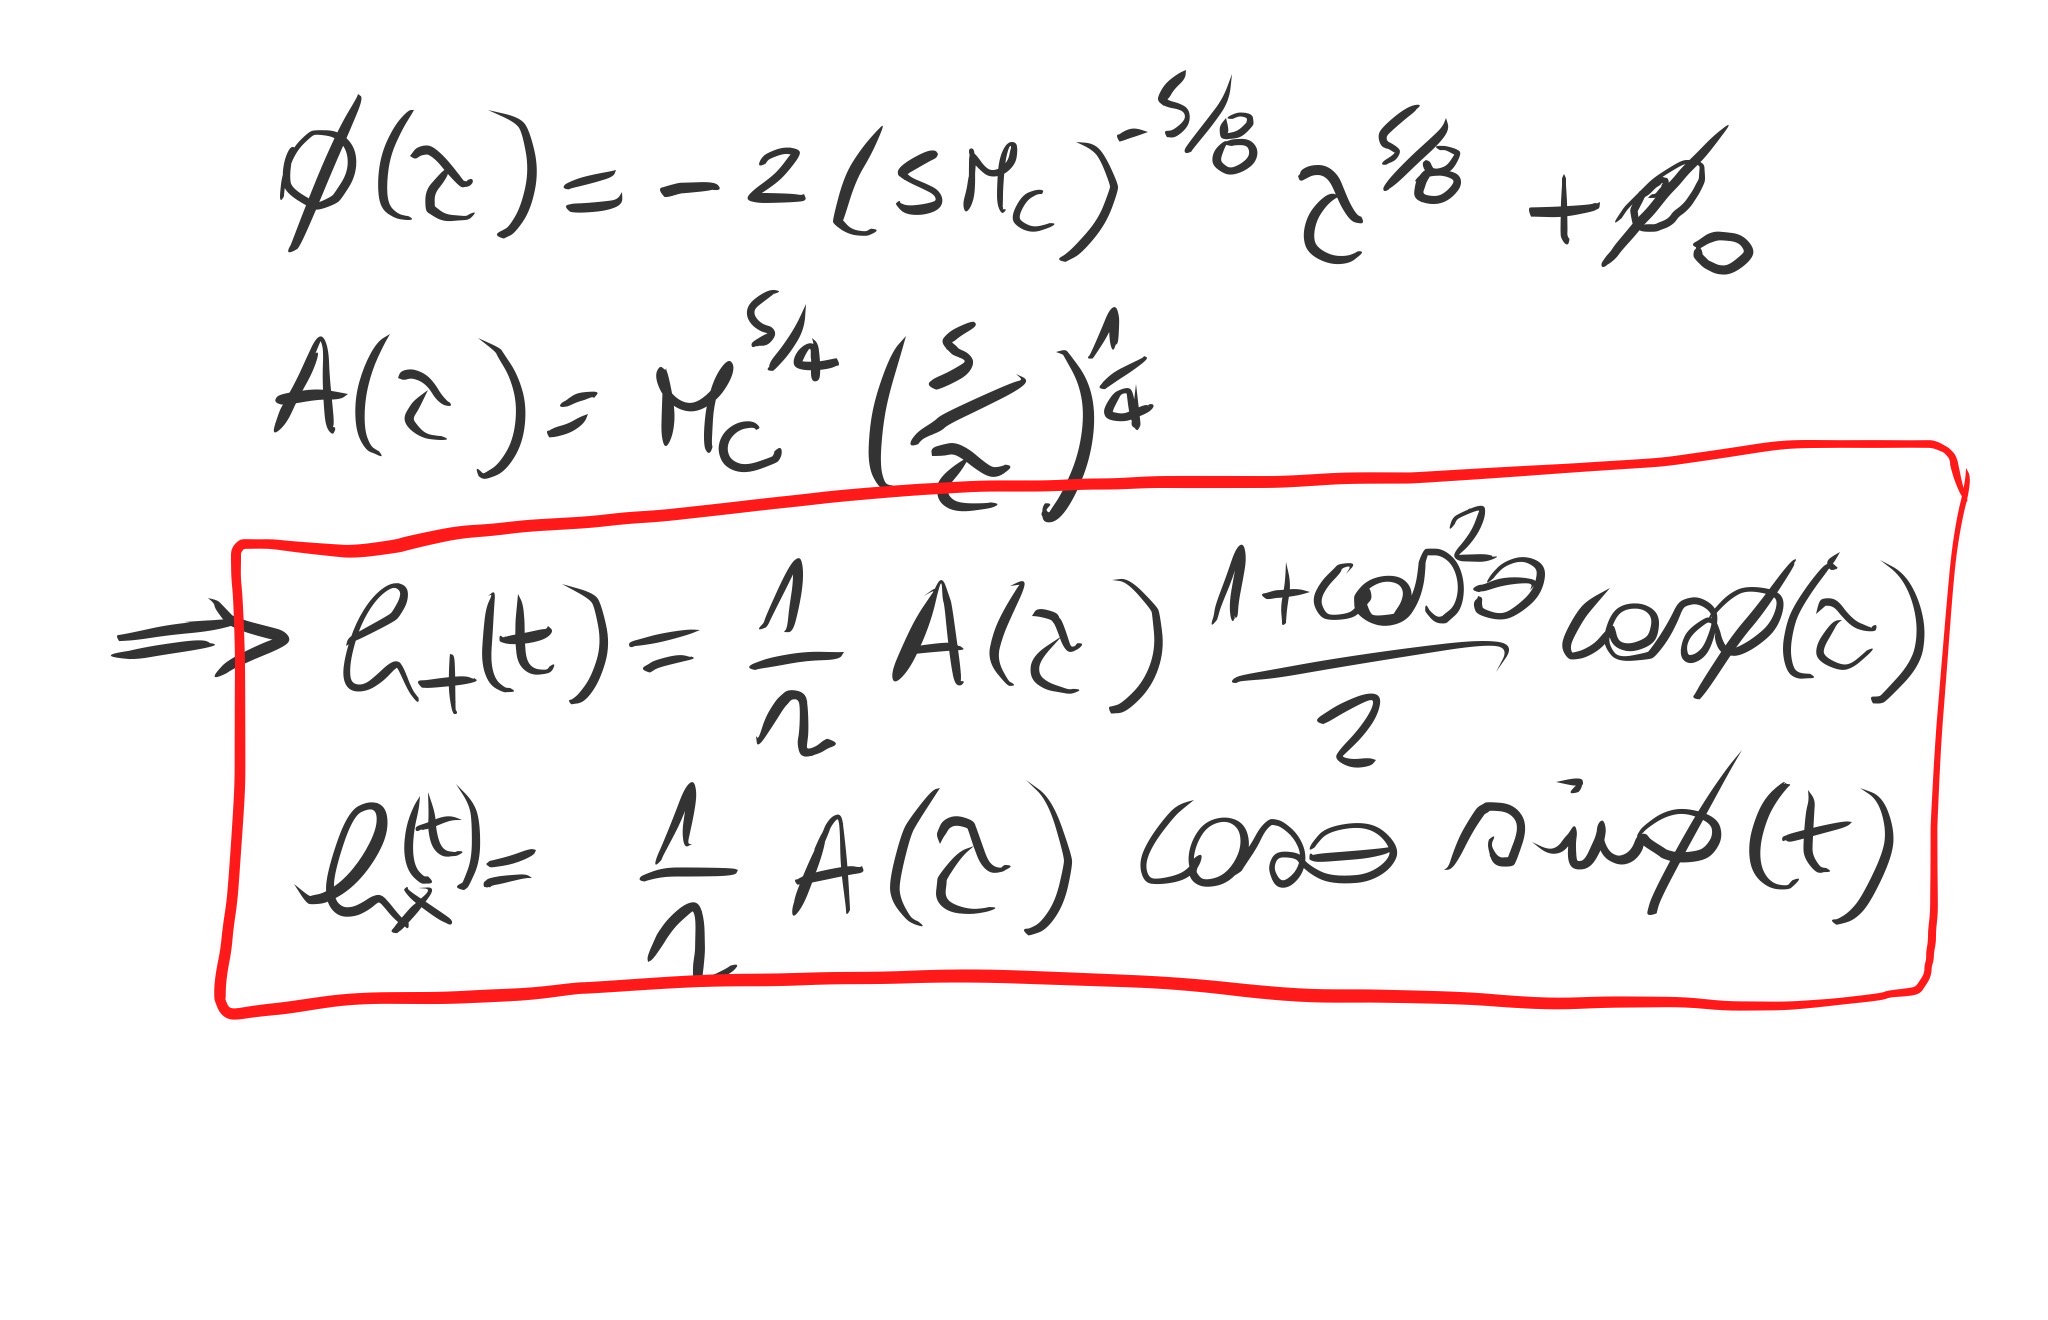 ϕ(τ) = -2 (5M_c)^{-5/8} τ^{5/8} + ϕ_0
A(τ) = M_c^{5/4} (5/τ)^{1/4}
⇒ h_+(t) = 1/r A(τ) (1+cos²θ)/2 cosϕ(τ)
h_×(t) = 1/r A(τ) cosθ sinϕ(t)